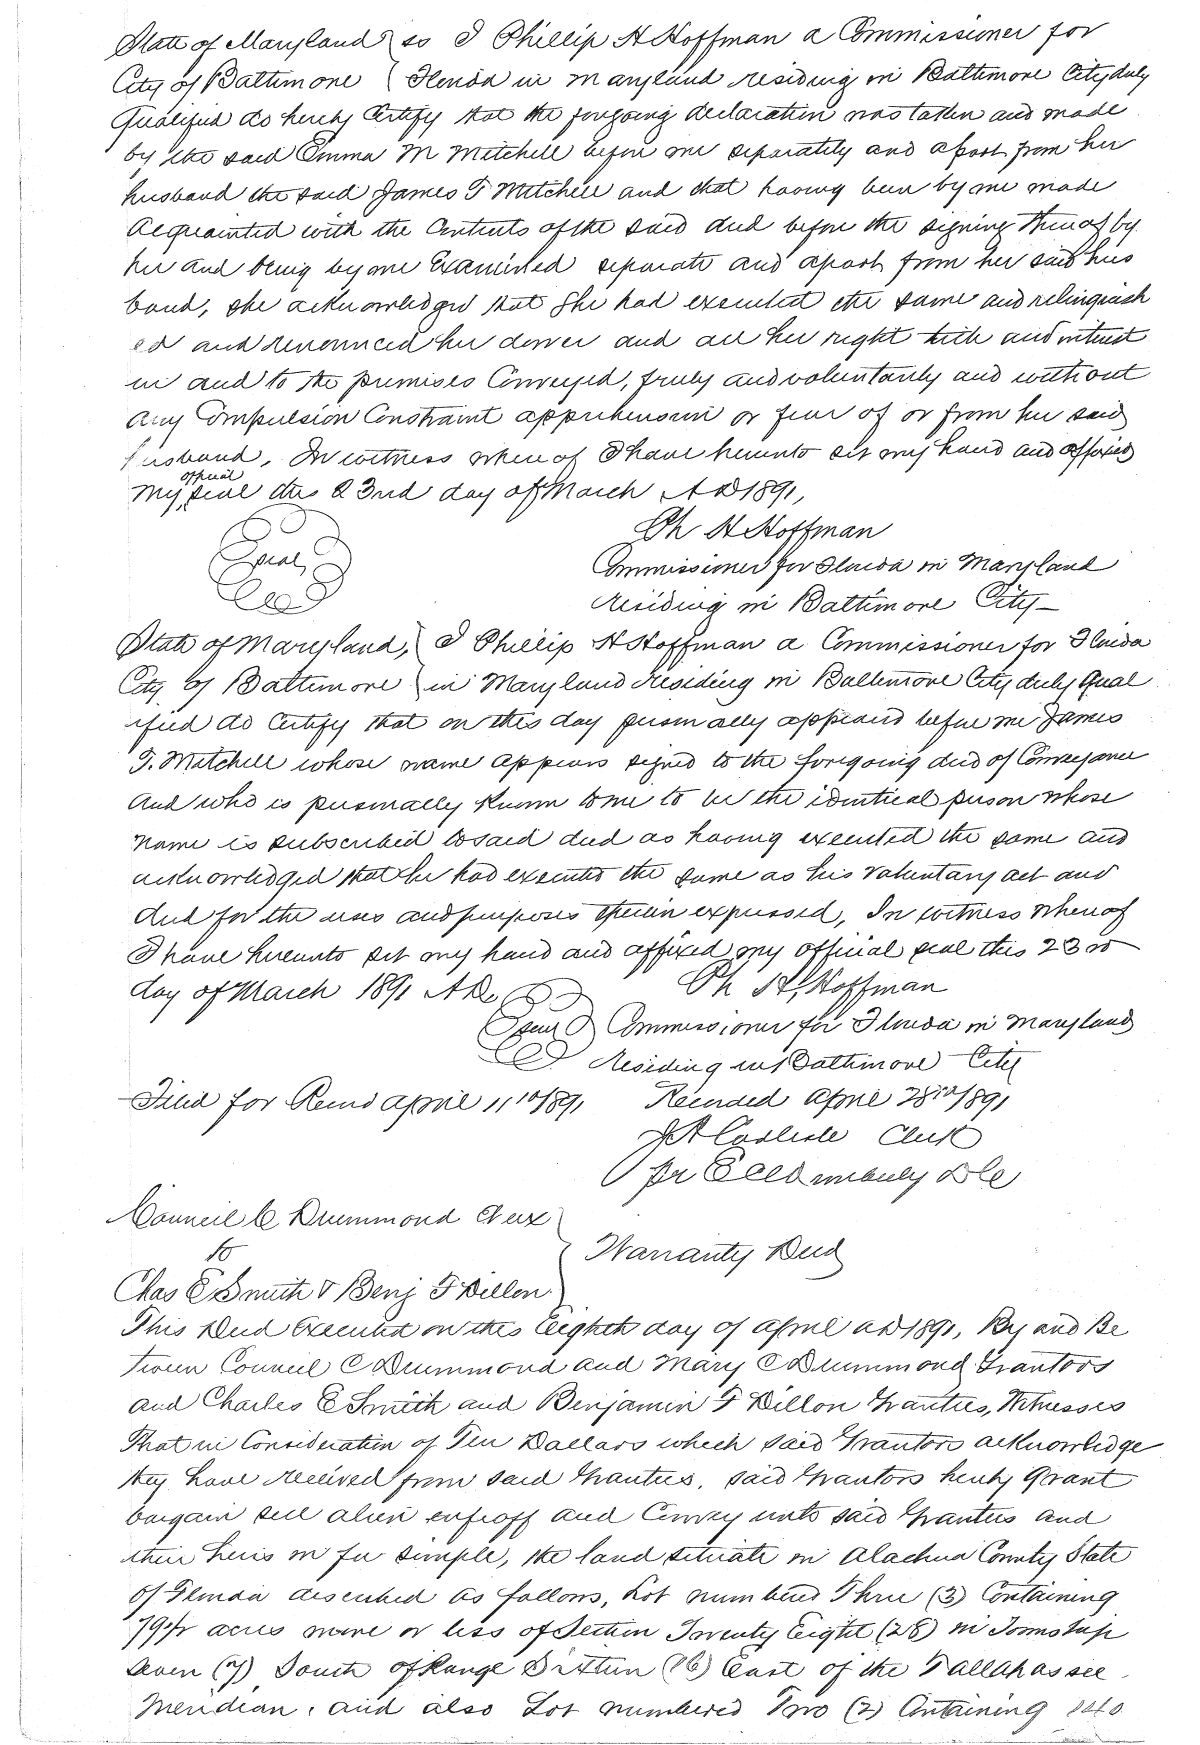 State of Maryland } ss I Phillip H Hoffman a Commissioner for
City of Baltimore } Florida in Maryland residing in Baltimore City duly
Qualified do hereby Certify that the foregoing declaration was taken and made
by the said Emma M Mitchell before me separately and apart from her
husband the said James T Mitchell and that having been by me made
Acquainted with the Contents of the said deed before the signing thereof by
her and being by me Examined separate and apart from her said hus
band, she acknowledged that she had executed the same and relinquish
ed and renounced her dower and all her right title and interest
in and to the premises Conveyed, freely and voluntarily and without
any Compulsion Constraint apprehension or fear of or from her said
husband, In witness whereof I have hereunto set my hand and affixed
my official seal this 23rd day of March A D 1891,
Seal Ph H Hoffman
Commissioner for Florida in Maryland
residing in Baltimore City
State of Maryland, } I Phillip H Hoffman a Commissioner for Florida
City of Baltimore } in Maryland residing in Baltimore City duly Qual
ified do Certify that on this day personally appeared before me James
T. Mitchell whose name appears signed to the foregoing deed of Conveyance
and who is personally known to me to be the identical person whose
name is subscribed to said deed as having executed the same and
acknowledged that he had executed the same as his voluntary act and
deed for the uses and purposes therein expressed, In witness whereof
I have hereunto set my hand and affixed my official seal this 23rd
day of March 1891 A D. Ph H, Hoffman
Seal Commissioner for Florida in Maryland
Residing in Baltimore City
Filed for Record April 11th 1891 Recorded April 28th 1891
J A Carlisle Clerk
pr D C
Council C Drummond & ux
to } Warranty Deed
Chas E Smith & Benj F Dillon
This Deed Executed on this Eighth day of April A D 1891, By and Be
tween Council C Drummond and Mary C Drummond Grantors
and Charles E Smith and Benjamin F Dillon Grantees, Witnesses
That in Consideration of Ten Dollars which said Grantors acknowledge
they have received from said Grantees, said Grantors hereby Grant
bargain sell alien enfeoff and Convey unto said Grantees and
their heirs in fee simple, the land situate in Alachua County State
of Florida described as follows, Lot numbered Three (3) Containing
acres more or less of Section Twenty Eight (28) in Township
Seven (7) South of Range Sixteen (16) East of the Tallahassee
Meridian, and also Lot numbered Two (2) Containing